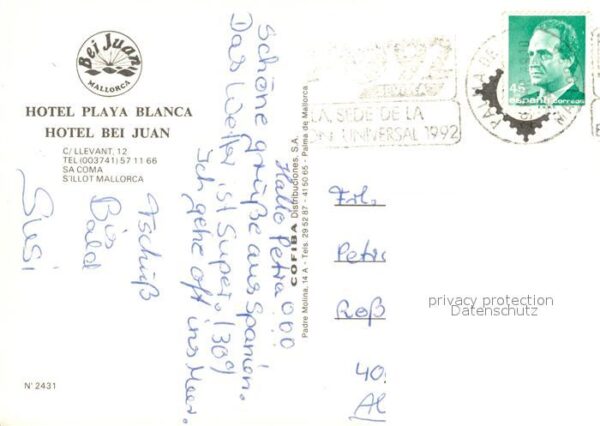 Bei Juan
MALLORCA
HOTEL PLAYA BLANCA
HOTEL BEI JUAN
C/ LLEVANT, 12
TEL (003741) 57 11 66
SA COMA
S'ILLOT MALLORCA
Hallo Petra ooo
Schöne grüße aus Spanien.
Das Wetter ist Super. (30°)
Ich gehe oft ins Meer.
Tschüß
Bis
Bald
Susi
COFIBA Distribuciones, S.A.
Padre Molina, 14 A - Tels. 29 52 87 - 41 50 65 - Palma de Mallorca
LA SEDE DE LA
UNIVERSAL 1992
45
españa correos
Frl.
Petra
Roß
40
Al
privacy protection
Datenschutz
N° 2431